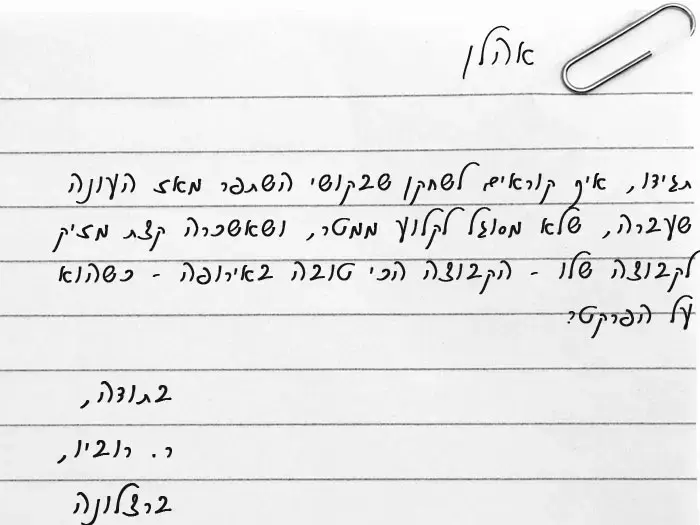 אהלן
תגידו, איך קוראים לשחקן שבקושי השתפר מאז העונה
שעברה, שלא מסוגל לקלוע ממטר, ושאשכרה קצת מזיק
לקבוצה שלו - הקבוצה הכי טובה באירופה - כשהוא
על הפרקט?
בתודה,
ר. רוביו,
ברצלונה